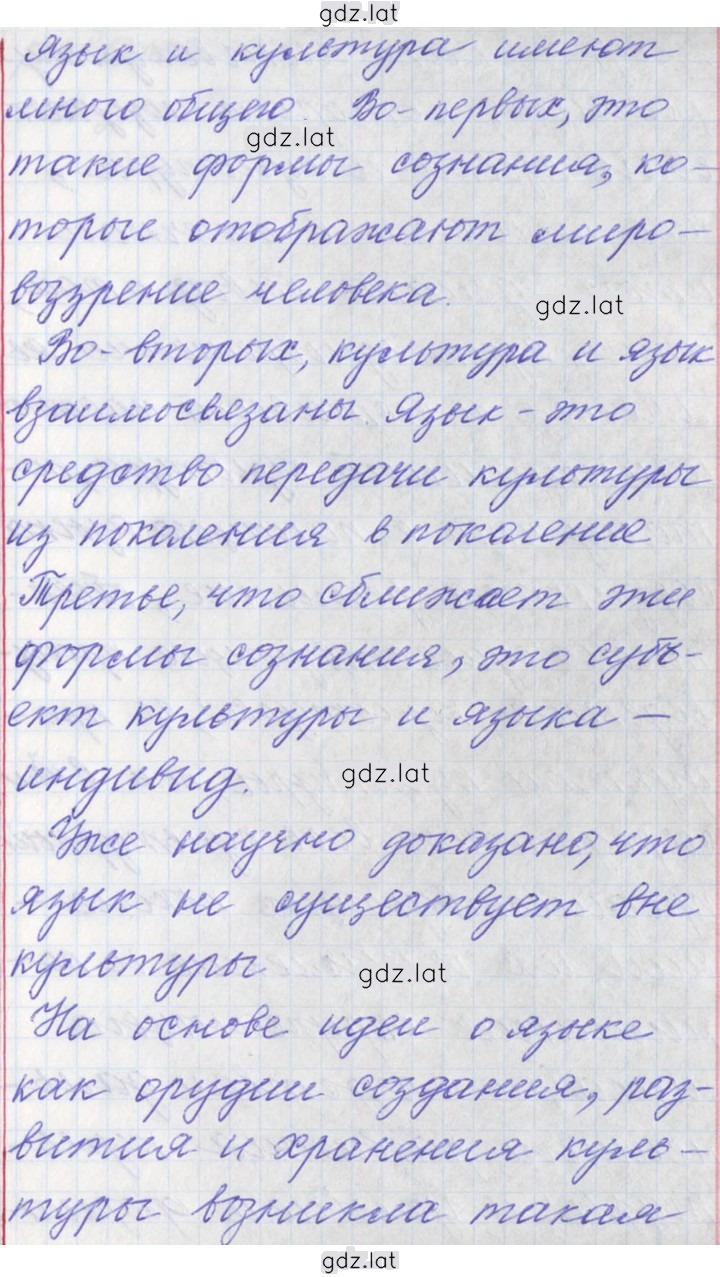 gdz.lat
Язык и культура имеют
много общего. Во-первых, это
gdz.lat
такие формы сознания, ко-
торые отображают миро-
воззрение человека.
gdz.lat
Во-вторых, культура и язык
взаимосвязаны. Язык - это
средство передачи культуры
из поколения в поколение
Третье, что сближает эти
формы сознания, это субъ-
ект культуры и языка –
индивид.
gdz.lat
Уже научно доказано, что
язык не существует вне
культуры
gdz.lat
На основе идеи о языке
как орудии создания, раз-
вития и хранения куль-
туры возникла такая
gdz.lat